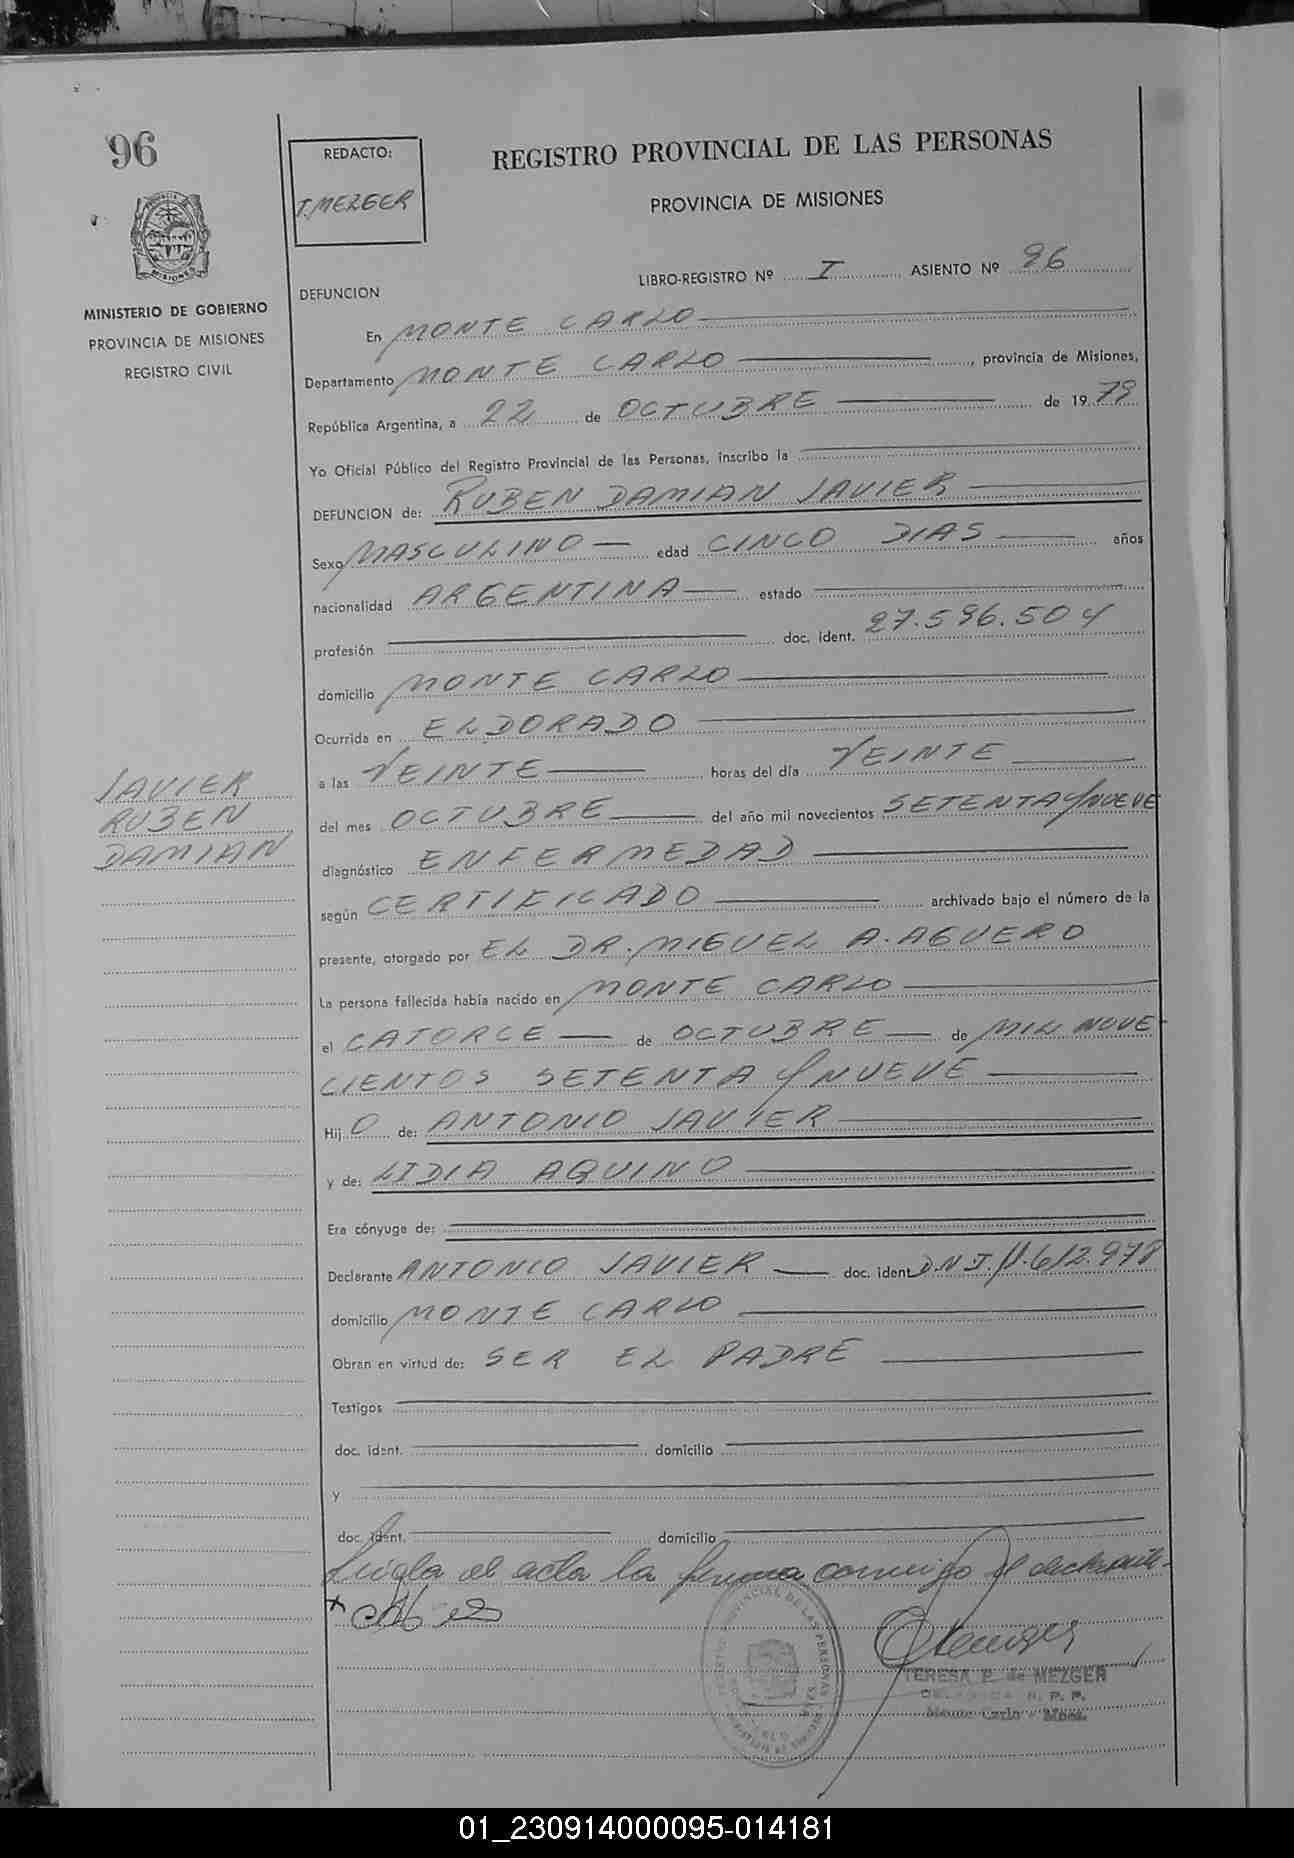 96
REDACTO:
T. MEZGER
REGISTRO PROVINCIAL DE LAS PERSONAS
PROVINCIA DE MISIONES
MINISTERIO DE GOBIERNO
PROVINCIA DE MISIONES
REGISTRO CIVIL
LIBRO-REGISTRO Nº I ASIENTO Nº 96
DEFUNCION
En MONTE CARLO
Departamento MONTE CARLO, provincia de Misiones,
República Argentina, a 22 de OCTUBRE de 1979
Yo Oficial Público del Registro Provincial de las Personas, inscribo la
DEFUNCION de: RUBEN DAMIAN JAVIER
Sexo MASCULINO edad CINCO DIAS años
nacionalidad ARGENTINA estado
profesión doc. ident. 27.596.504
domicilio MONTE CARLO
Ocurrida en ELDORADO
a las VEINTE horas del día VEINTE
JAVIER
RUBEN
DAMIAN
del mes OCTUBRE del año mil novecientos SETENTA Y NUEVE
diagnóstico ENFERMEDAD
según CERTIFICADO archivado bajo el número de la
presente, otorgado por EL DR. MIGUEL A. AGUERO
La persona fallecida había nacido en MONTE CARLO
el CATORCE de OCTUBRE de MIL NOVE-
CIENTOS SETENTA Y NUEVE
Hij O de: ANTONIO JAVIER
y de: LIDIA AQUINO
Era cónyuge de:
Declarante ANTONIO JAVIER doc. ident D.N.I. 11.612.978
domicilio MONTE CARLO
Obran en virtud de: SER EL PADRE
Testigos
doc. ident. domicilio
y
doc. ident. domicilio
Leida el acta la firma conmigo el declarante-
TERESA P. de MEZGER
R. P. P.
Monte Carlo - Mnes.
01_230914000095-014181